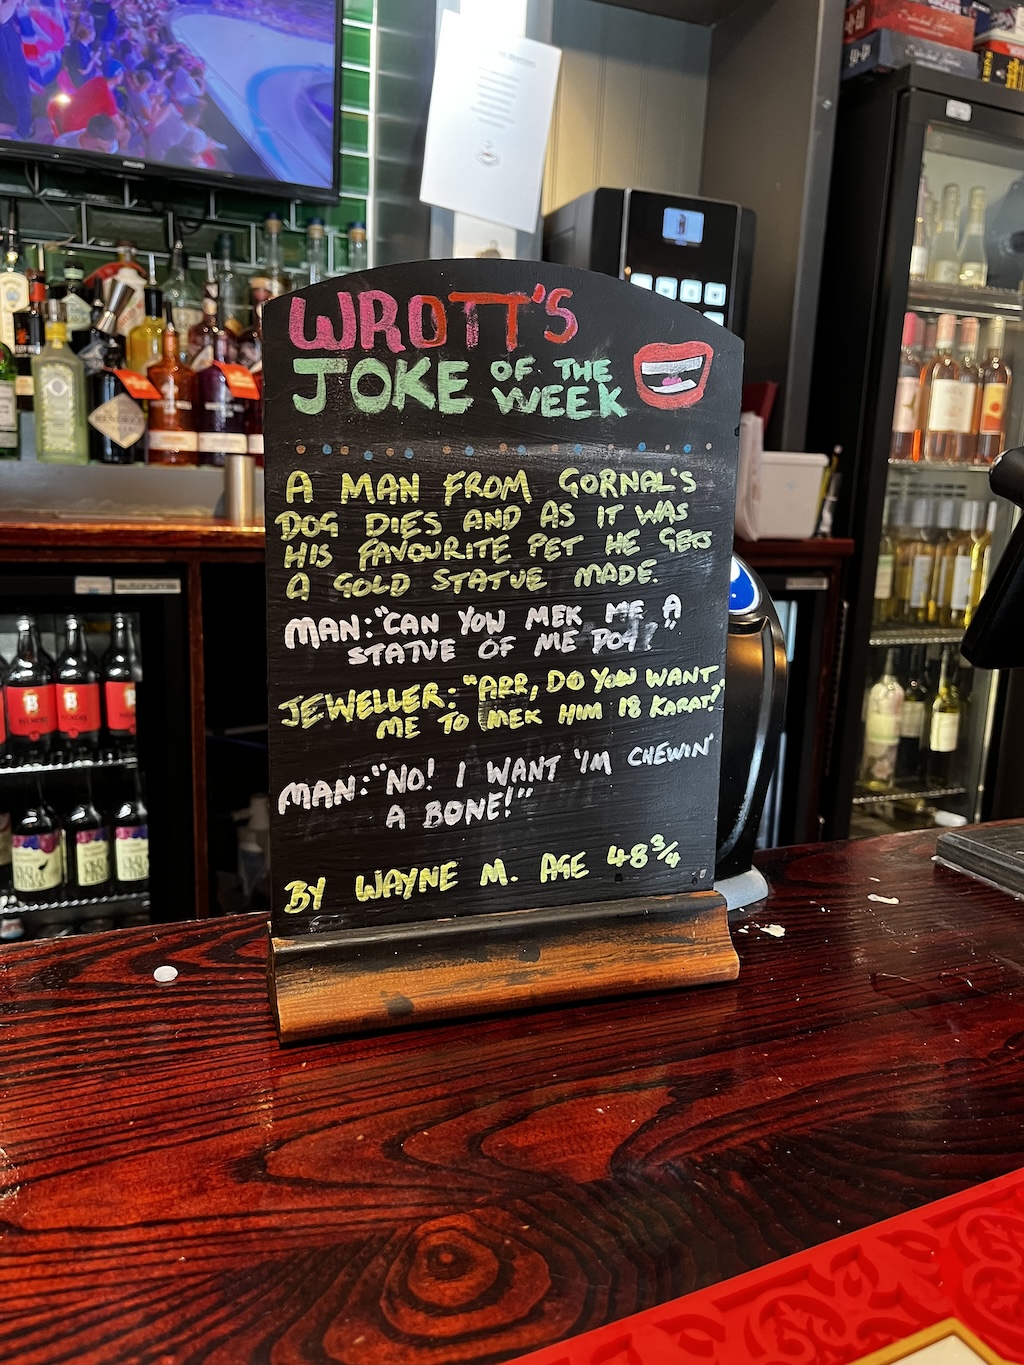 WROTT'S
JOKE OF THE WEEK
A MAN FROM GORNAL'S
DOG DIES AND AS IT WAS
HIS FAVOURITE PET HE GETS
A GOLD STATUE MADE.
MAN: "CAN YOW MEK ME A
STATUE OF ME DOG?"
JEWELLER: "ARR, DO YOW WANT
ME TO MEK HIM 18 KARAT?"
MAN: "NO! I WANT 'IM CHEWIN'
A BONE!"
BY WAYNE M. AGE 48 3/4